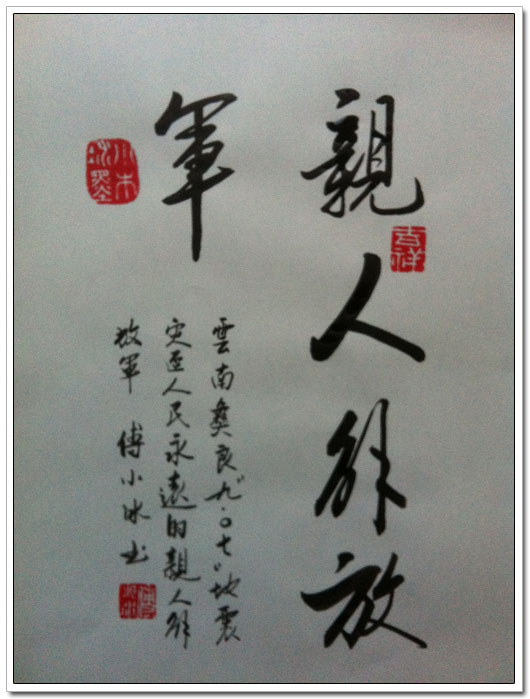 親人解放
軍
雲南彝良九·〇七"地震
灾區人民永遠的親人解
放軍 傅小冰书
吉祥